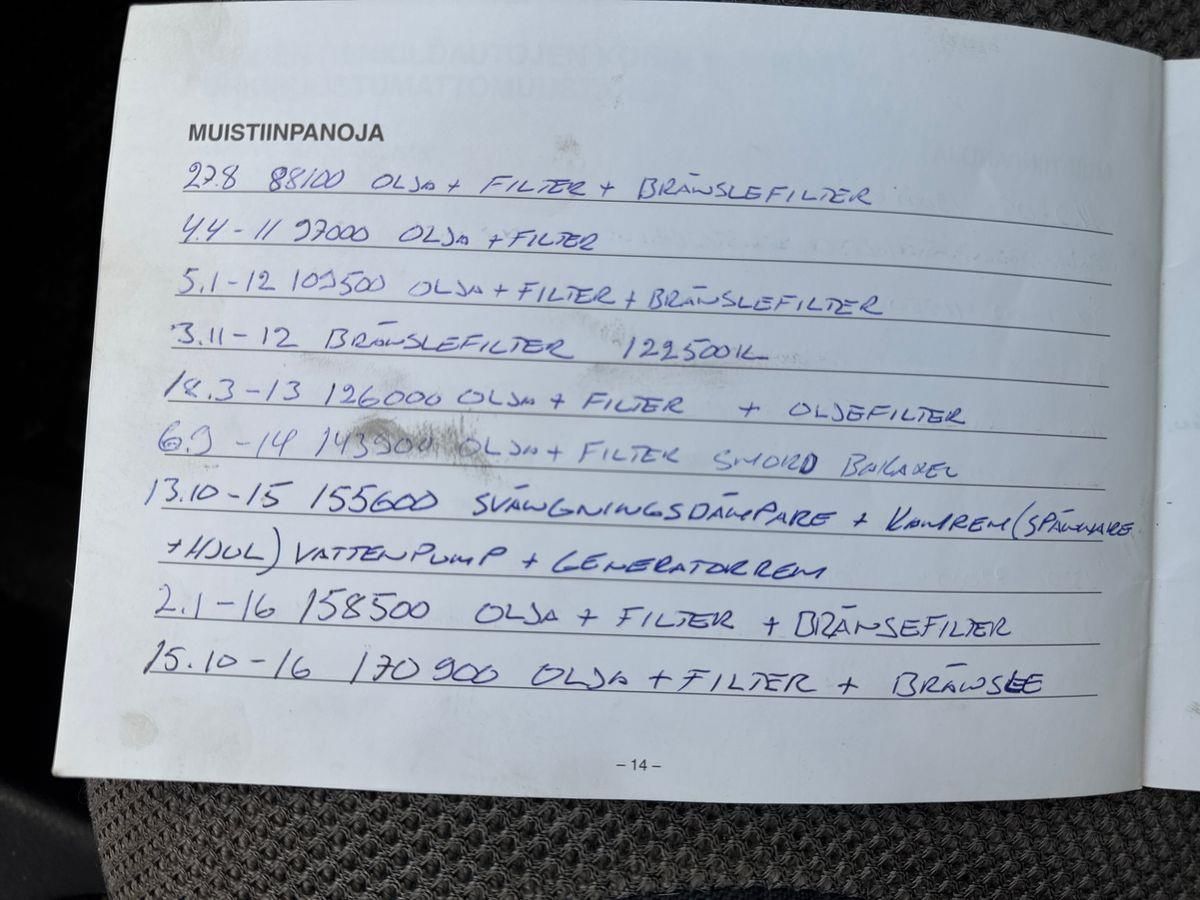 MUISTIINPANOJA
27.8 88100 OLJA + FILTER + BRÄNSLEFILTER
4.4-11 97000 OLJA + FILTER
5.1-12 109500 OLJA + FILTER + BRÄNSLEFILTER
3.11-12 BRÄNSLEFILTER 122500K
18.3-13 126000 OLJA + FILTER + OLJEFILTER
6.9-14 143900 OLJA + FILTER SMORD BAKAXEL
13.10-15 155600 SVÄNGNINGSDÄMPARE + KAMREM (SPÄNNARE
+ HJUL) VATTENPUMP + GENERATORREM
2.1-16 158500 OLJA + FILTER + BRÄNSEFILTER
15.10-16 170900 OLJA + FILTER + BRÄNSLE
– 14 –